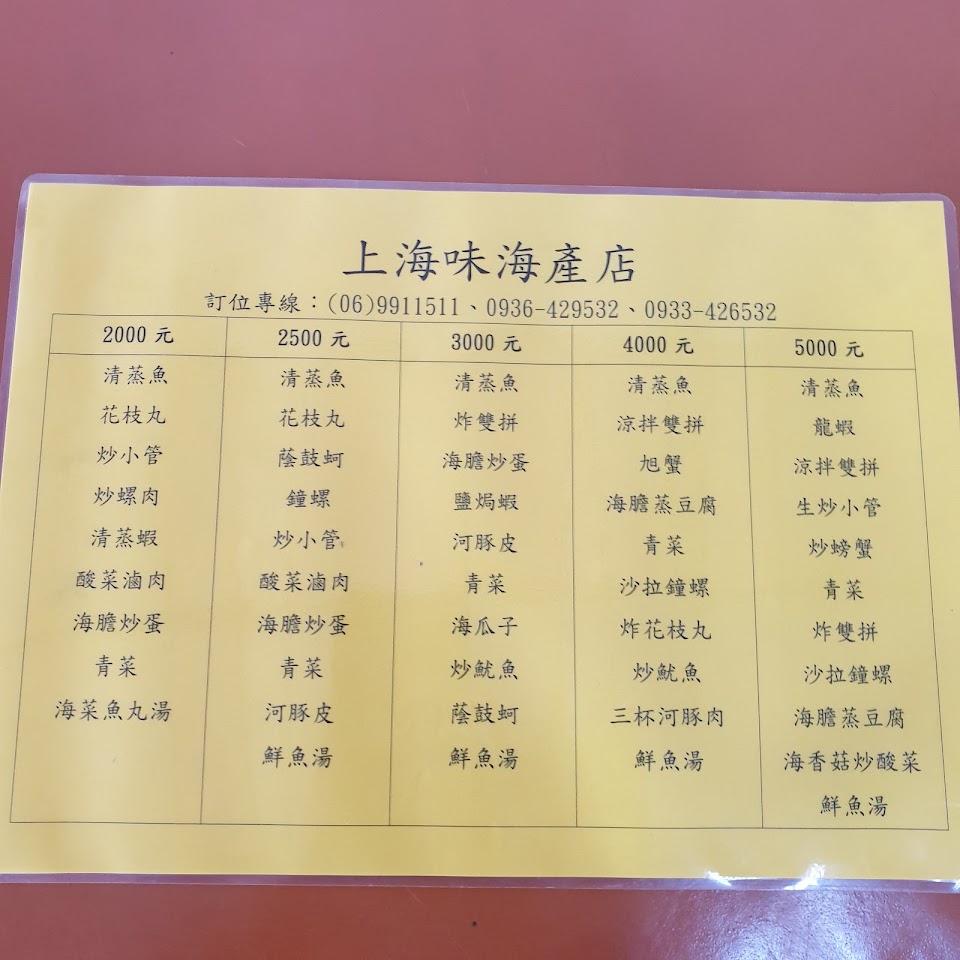 上海味海產店
訂位專線：(06)9911511、0936-429532、0933-426532
2000 元
清蒸魚
花枝丸
炒小管
炒螺肉
清蒸蝦
酸菜滷肉
海膽炒蛋
青菜
海菜魚丸湯
2500 元
清蒸魚
花枝丸
蔭鼓蚵
鐘螺
炒小管
酸菜滷肉
海膽炒蛋
青菜
河豚皮
鮮魚湯
3000 元
清蒸魚
炸雙拼
海膽炒蛋
鹽焗蝦
河豚皮
青菜
海瓜子
炒魷魚
蔭鼓蚵
鮮魚湯
4000 元
清蒸魚
涼拌雙拼
旭蟹
海膽蒸豆腐
青菜
沙拉鐘螺
炸花枝丸
炒魷魚
三杯河豚肉
鮮魚湯
5000 元
清蒸魚
龍蝦
涼拌雙拼
生炒小管
炒螃蟹
青菜
炸雙拼
沙拉鐘螺
海膽蒸豆腐
海香菇炒酸菜
鮮魚湯